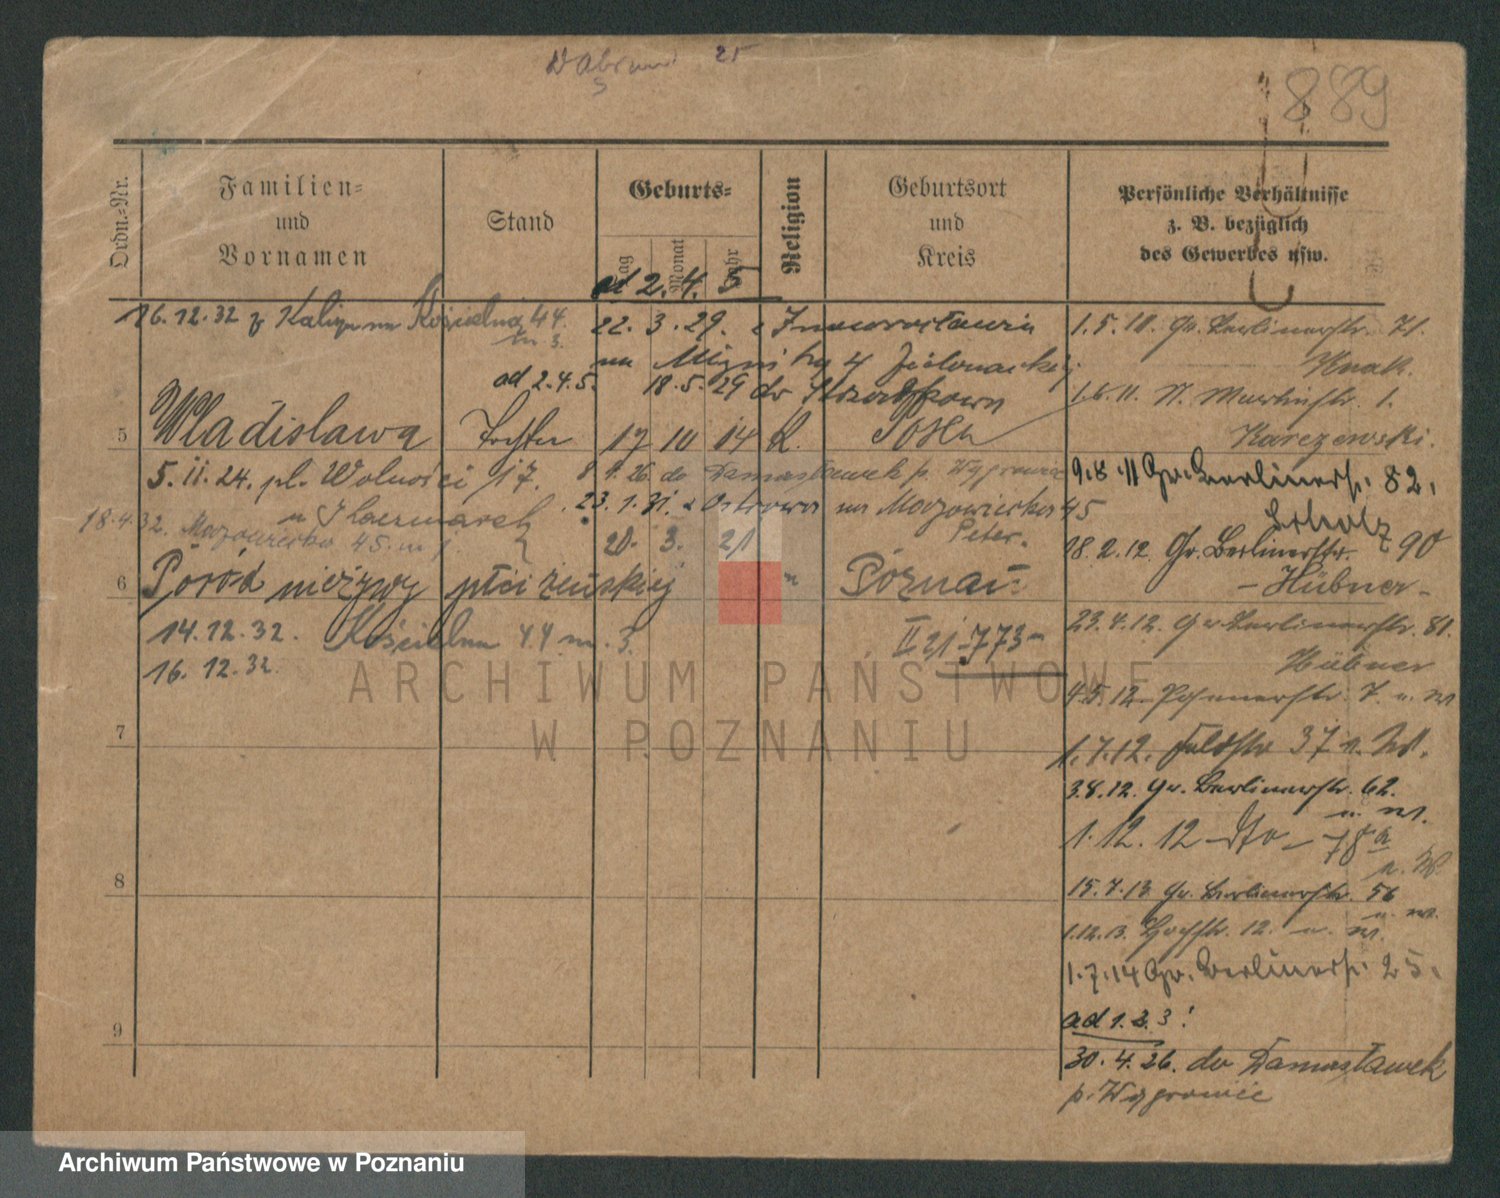 25
889
Ordn.-Nr.
Familien-
und
Vornamen
Stand
Geburts-
Tag
Monat
Jahr
Religion
Geburtsort
und
Kreis
Persönliche Verhältnisse
z. B. bezüglich
des Gewerbes usw.
ad 2.4.5
16.12.32 z Kalisza na Kościelna 44
m 3.
22. 3. 29. z Inowrocławia
na
ad 2.4.5. 18.5.29 do
5 Wladislawa Tochter 17 10 14 K.
5.11.24. pl. Wolności 17.
8 1.26. do Damasławek p. Wągrowiec
23.1.31. z Ostrowa na Mazowiecka 45
Peter.
18.4.32. Mazowiecka 45. m
20. 3. 21
6 Poród nieżywy płci żeńskiej " Poznań
14.12.32. Kościelna 44 m. 3.
16.12.32.
II 21-773-
7
8
9
1.5.10. Gr. Berlinerstr. 71.
Knak.
1.6.11. St. Martinstr. 1.
Karczewski.
9.8.11 Gr. Berlinerstr. 82.
18.2.12. Gr. Berlinerstr. 90
- Hübner -
23.4.12. Gr. Berlinerstr. 81.
Hübner
4.5.12. Posenerstr. 7. u. W
1.7.12. Feldstr 37 u. W.
3.8.12. Gr. Berlinerstr. 62.
u. W.
1.12.12 - dto - 78a
u. W.
15.7.13 Gr. Berlinerstr. 56
u. W.
1.12.13. Hochstr. 12. u. W.
1.7.14 Gr. Berlinerstr. 25.
ad 1.2.3!
30.4.26. do Damasławek
p. Wągrowiec
ARCHIWUM PAŃSTWOWE
W POZNANIU
Archiwum Państwowe w Poznaniu